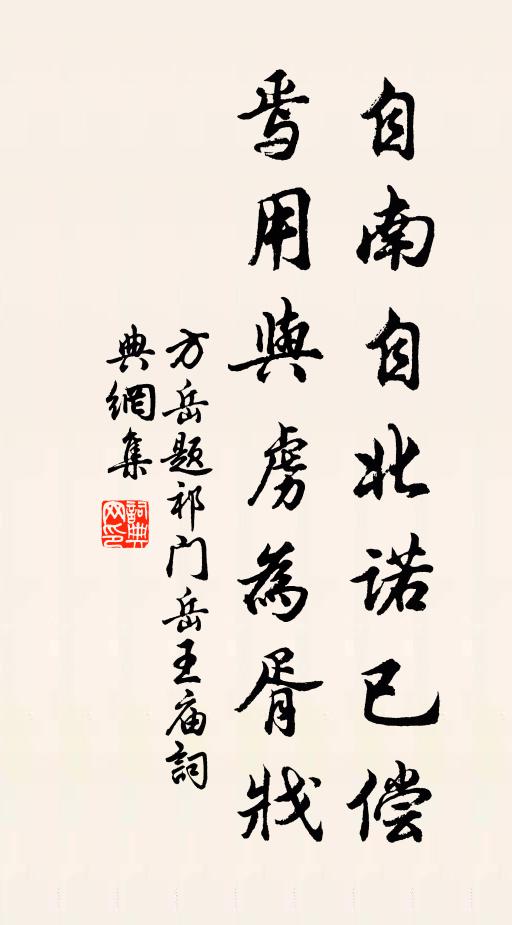 自南自北诺已偿
焉用與虏為胥戕
方岳题祁门岳王庙詞
典網集
詞典网印